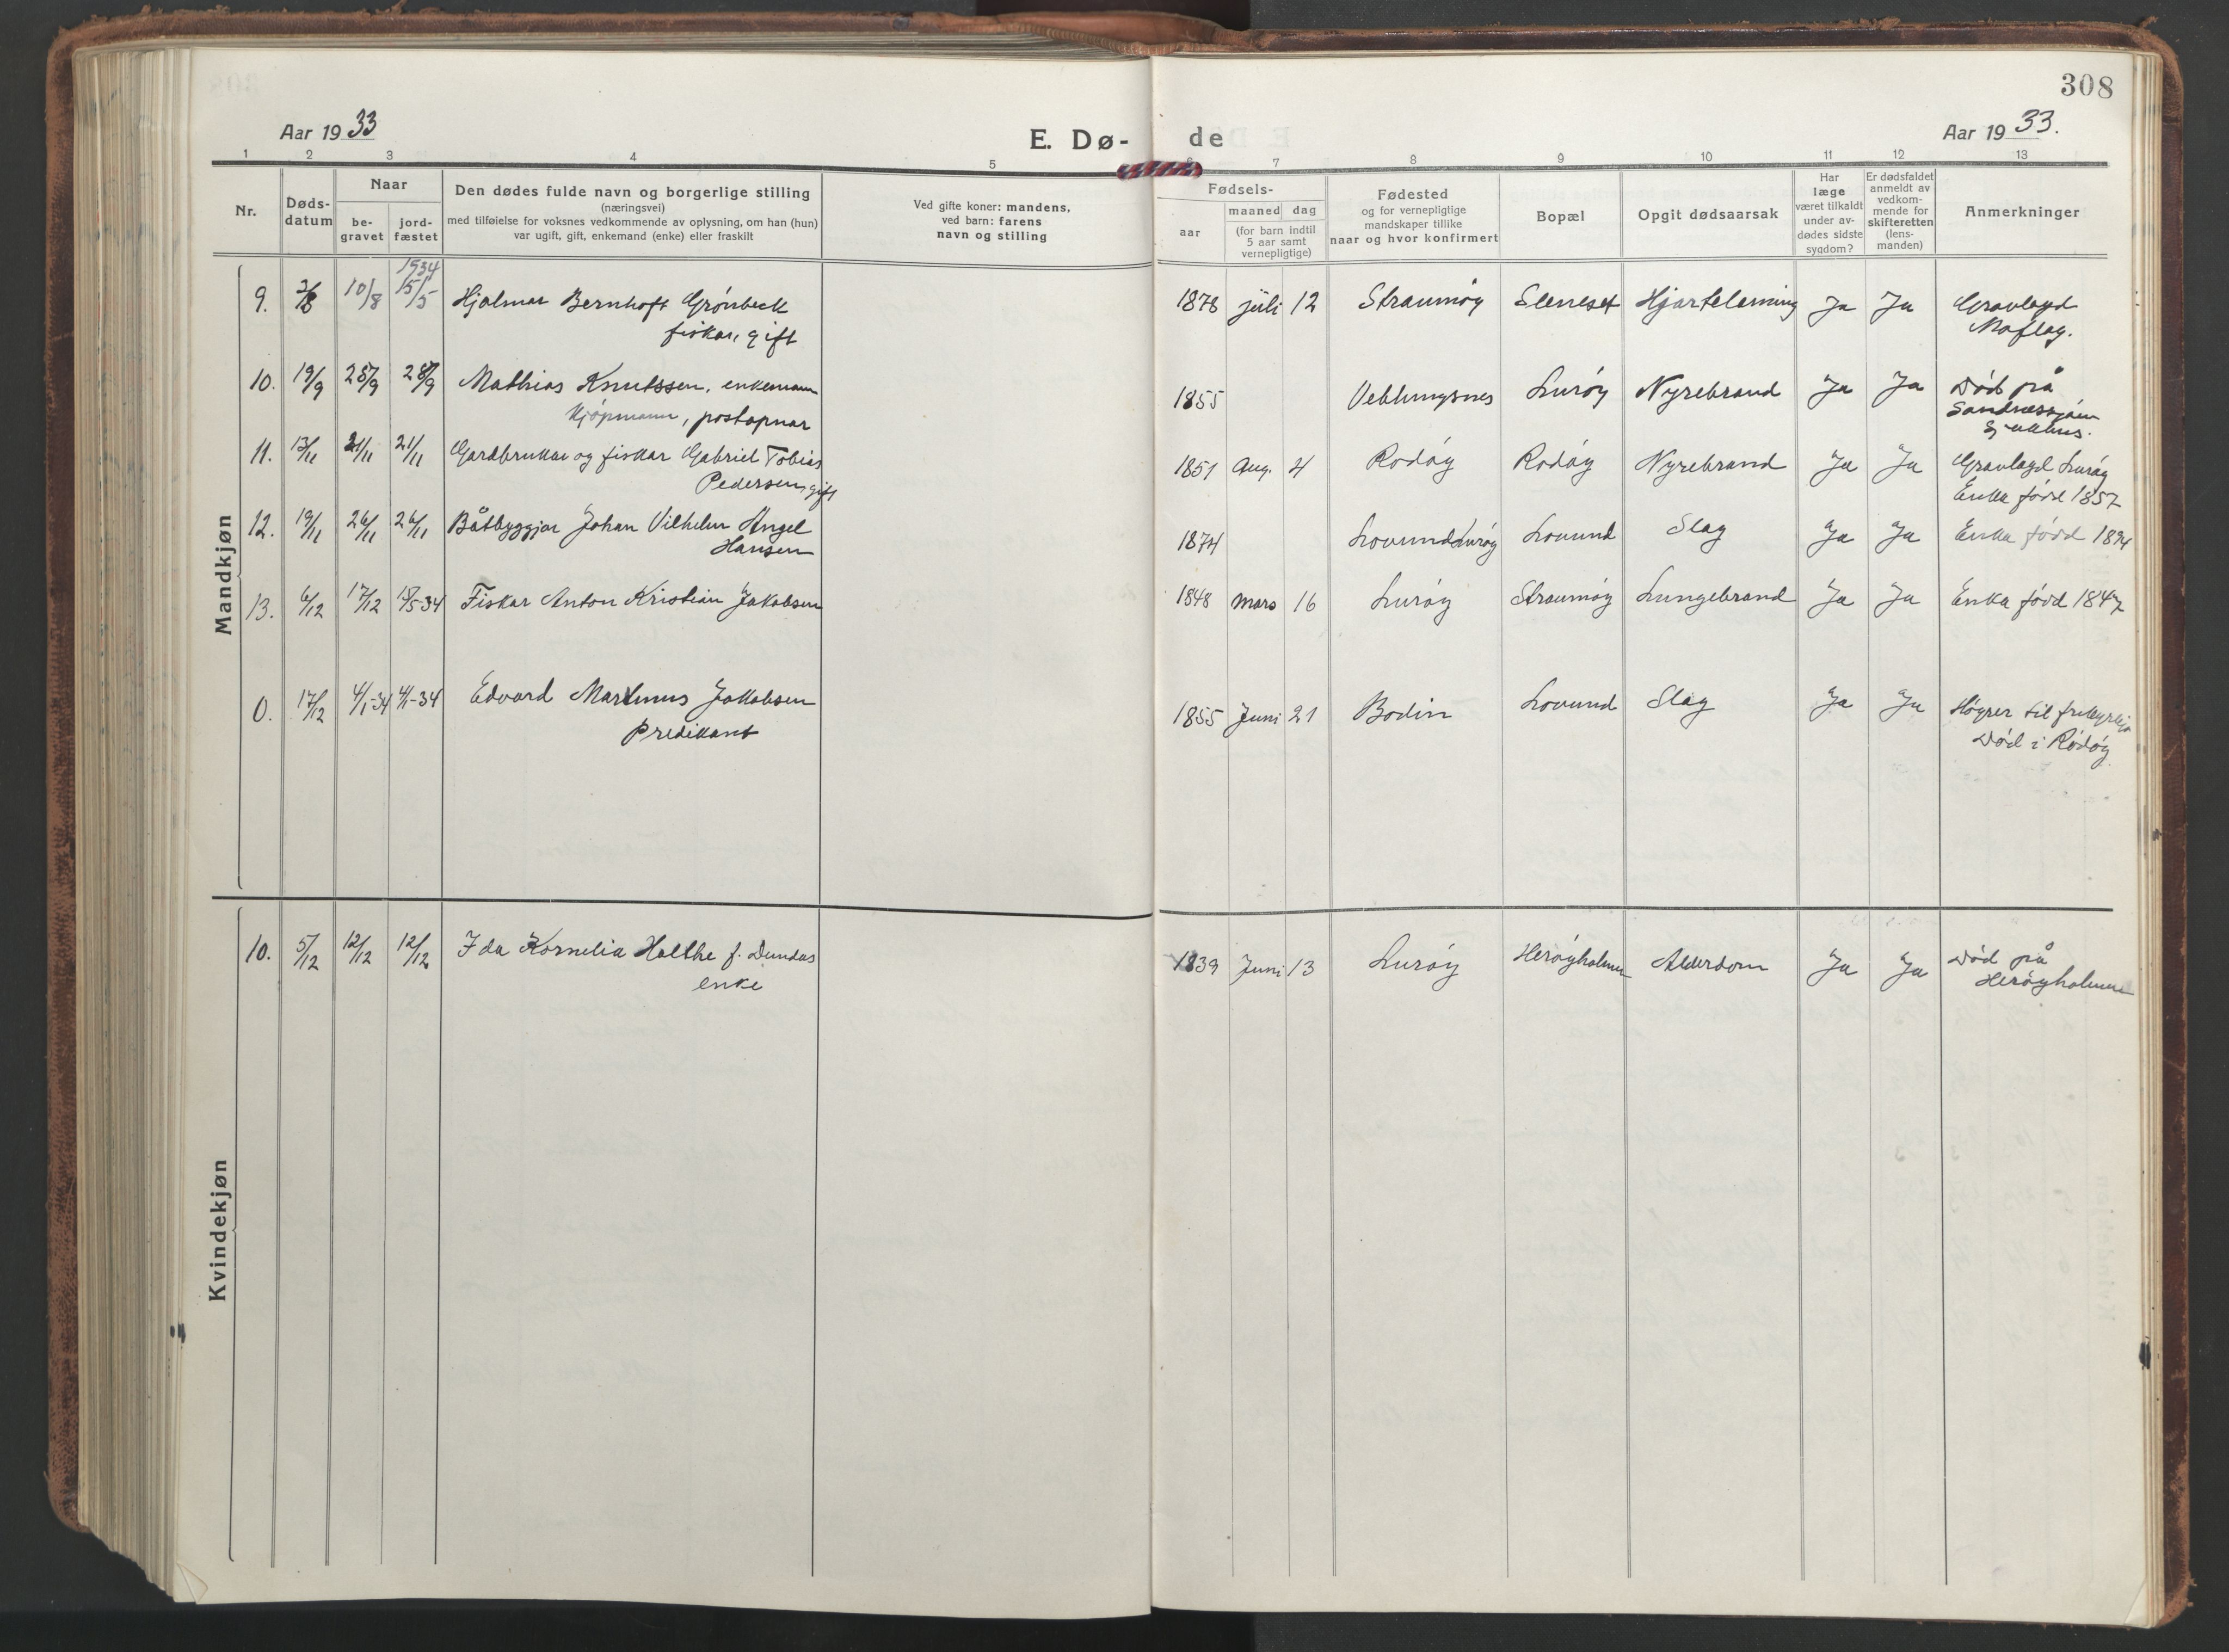 308
Aar 1933
E. Dø-
de
Aar 1933.
1 2 3 4 5 6 7 8 9 10 11 12 13
Nr.
Døds-
datum
Naar
be-
gravet
jord-
fæstet
Den dødes fulde navn og borgerlige stilling
(næringsvei)
med tilføielse for voksnes vedkommende av oplysning, om han (hun)
var ugift, gift, enkemand (enke) eller fraskilt
Ved gifte koner: mandens,
ved barn: farens
navn og stilling
Fødsels-
aar
maaned dag
(for barn indtil
5 aar samt
vernepligtige)
Fødested
og for vernepligtige
mandskaper tillike
naar og hvor konfirmert
Bopæl
Opgit dødsaarsak
Har
læge
været tilkaldt
under av-
dødes sidste
sygdom?
Er dødsfaldet
anmeldt av
vedkom-
mende for
skifteretten
(lens-
manden)
Anmerkninger
Mandkjøn
1934
9. 2/8 10/8 15/5 Hjalmar Bernhoft Grönbeck 1878 juli 12 Straumöy Sleneset Hjartelaming Ja Ja Gravlagd
fiskar, gift Moflag.
10. 19/9 28/9 28/9 Mathias Knutssen, enkemann 1855 Veblungsnes Luröy Nyrebrand Ja Ja Död på
Kjöpmann, postopnar Sandnessjöen
sjukhus.
11. 13/11 21/11 21/11 Gardbrukar og fiskar Gabriel Tobias 1851 Aug. 4 Rödöy Rödöy Nyrebrand Ja Ja Gravlagd Luröy
Pedersen, gift Enka född 1857
12. 19/11 26/11 26/11 Båtbyggjar Johan Vilhelm Angel 1874 Lovund Luröy Lovund Slag Ja Ja Enka född 1894
Hansen
13. 6/12 17/12 15/5-34 Fiskar Anton Kristian Jakobsen 1848 Mars 16 Luröy Straumöy Lungebrand Ja Ja Enka född 1847
0. 17/12 4/1-34 4/1-34 Edvard Martinus Jakobsen 1855 Juni 21 Bodin Lovund Slag Ja Ja Höyrer til frikyrkja
Predikant Död i Rödöy.
Kvindekjøn
10. 5/12 12/12 12/12 Ida Kornelia Holthe f. Dundas 1839 Juni 13 Luröy Heröyholmen Alderdom Ja Ja Död på
enke Heröyholmen